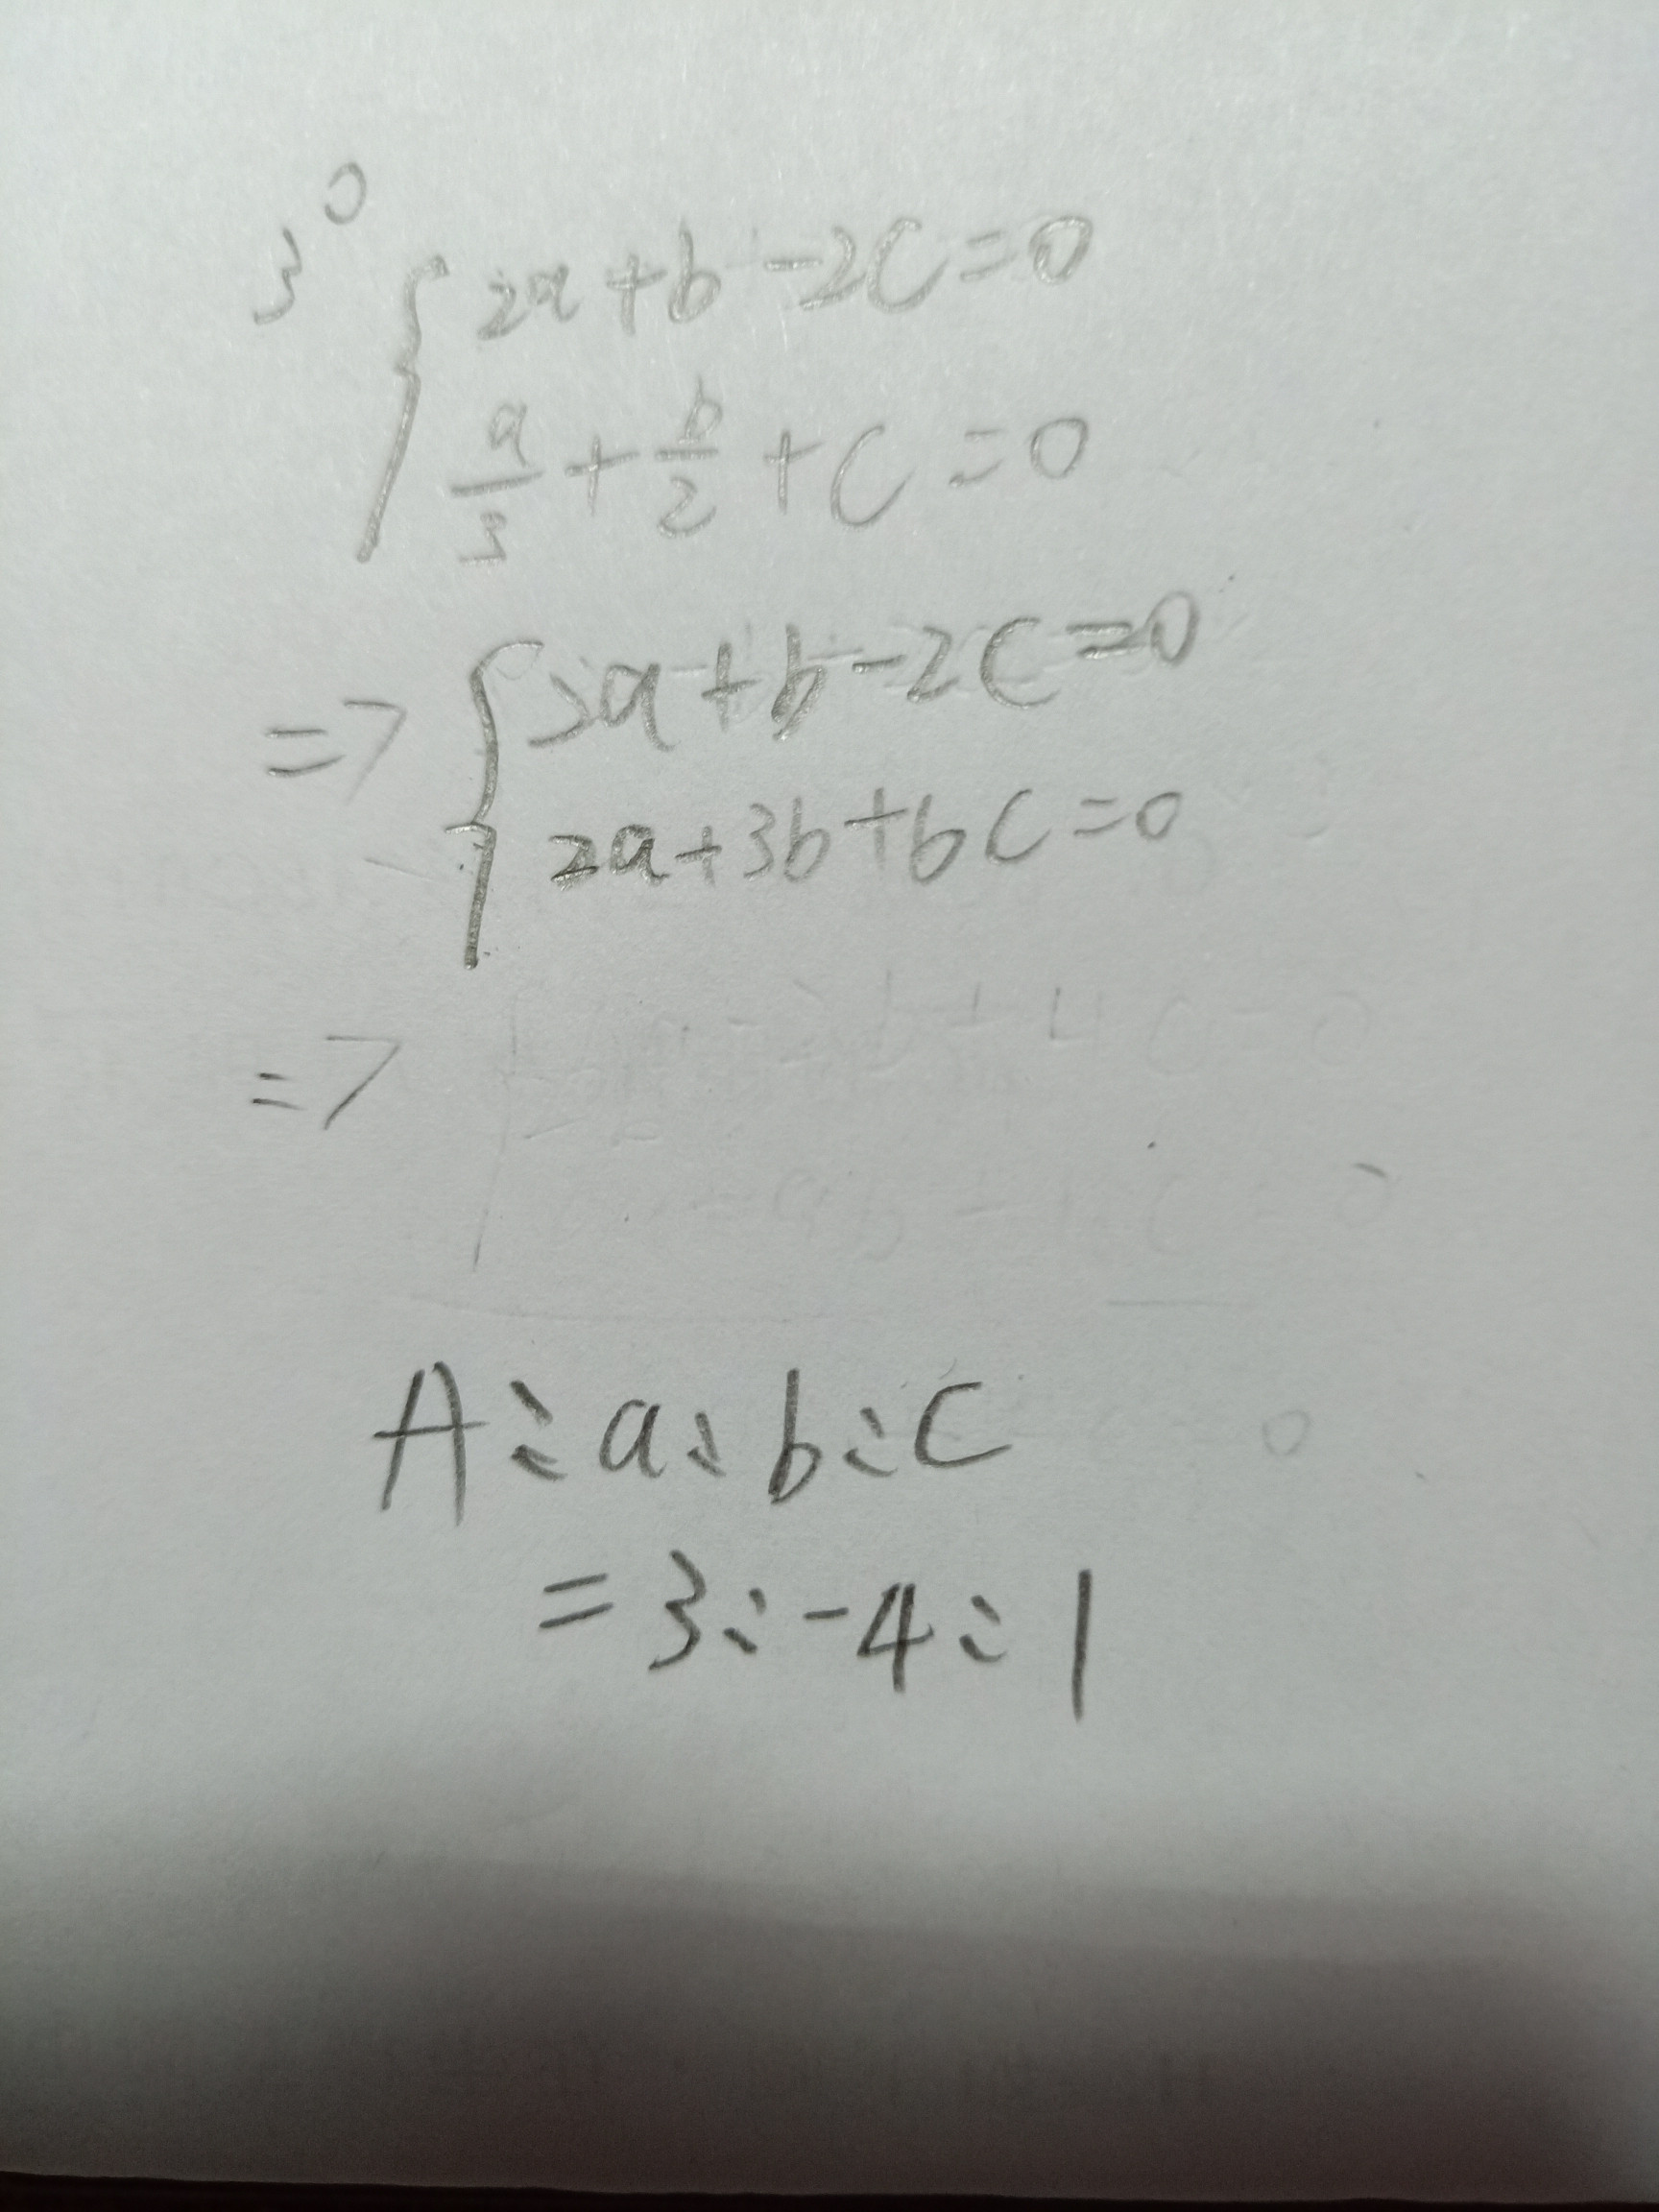 3⁰ { 2a+b-2C=0
a/3 + b/2 + C = 0
=> { 2a+b-2C=0
2a+3b+6C=0
=>
A: a:b:C
= 3:-4:1